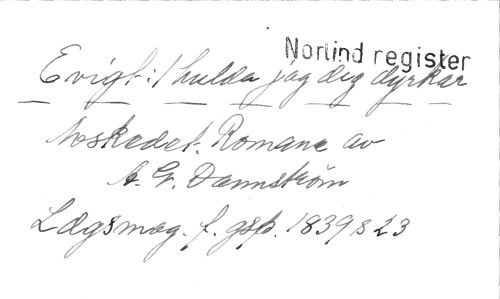 Norlind register
Evigt i hulda jag dig dyrkar
Avskedet. Romans av
A. G. Dannström
Lægsmag. f. gsp. 1839 s 23